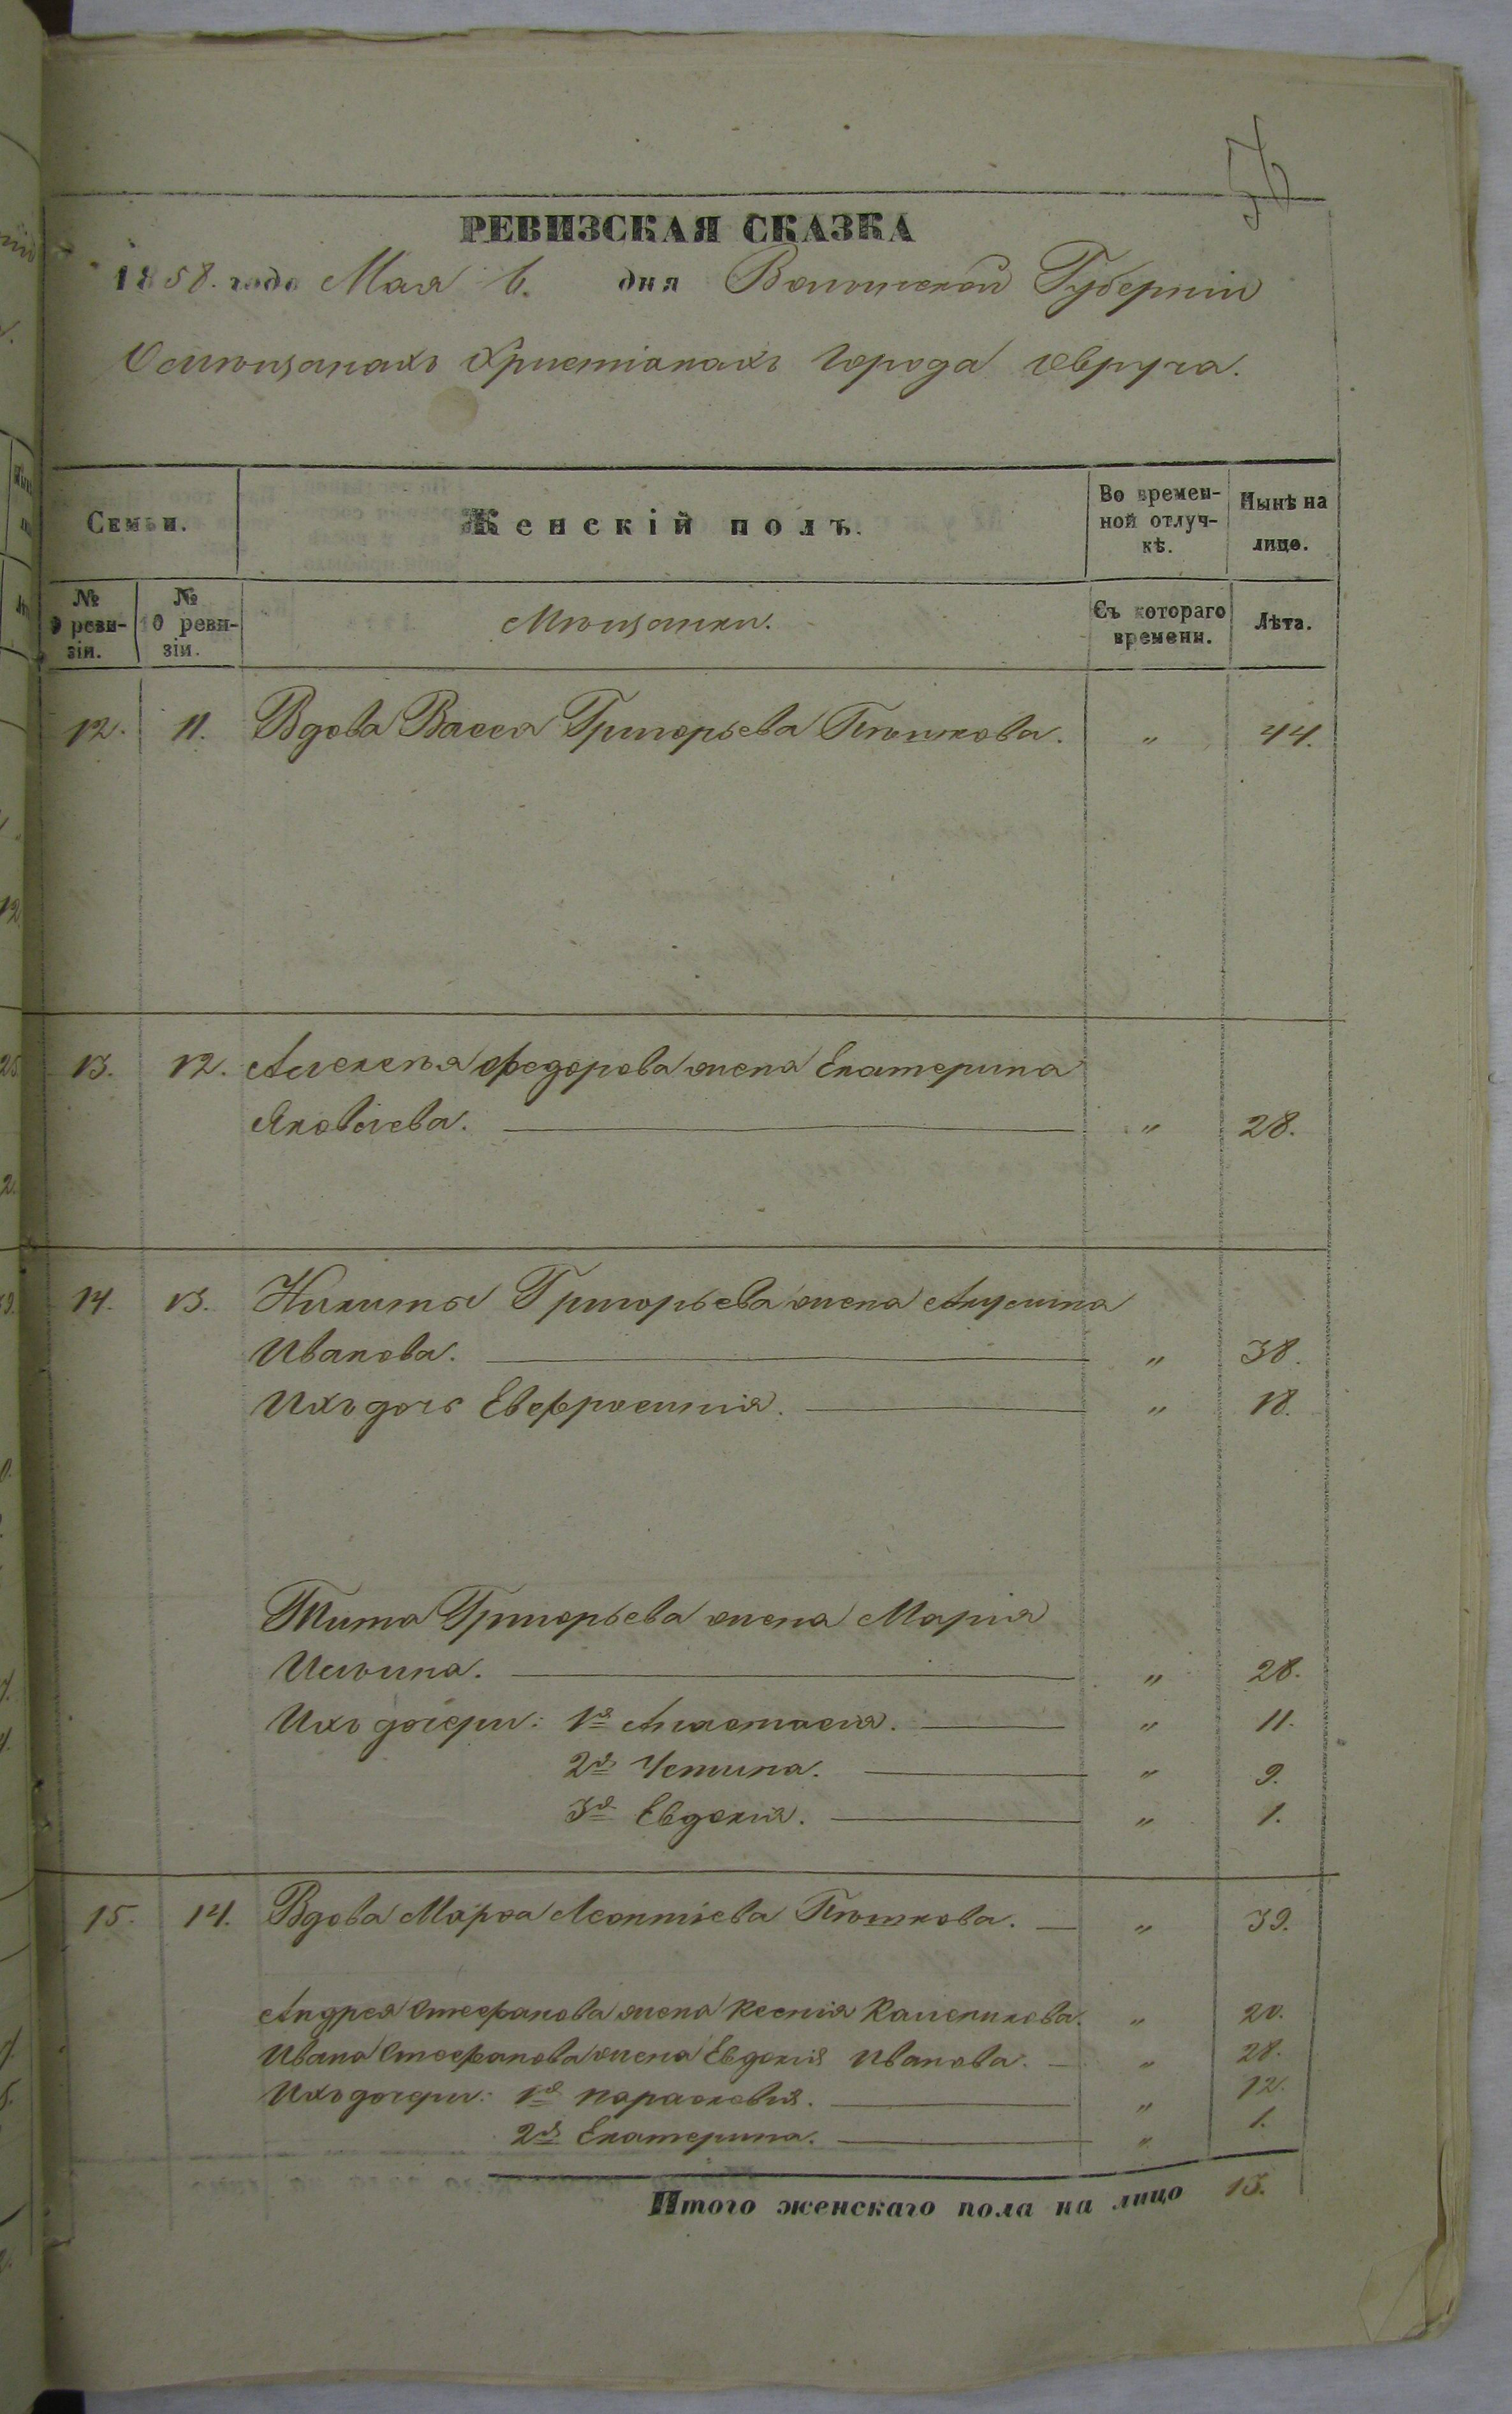 56
РЕВИЗСКАЯ СКАЗКА
1858. года Мая 6. дня Волынской Губерніи
О мѣщанахъ Христіанахъ города Овруча.
Семьи. Женскій полъ. Во времен-ной отлуч-кѣ. Нынѣ на лицо.
№ 9 реви-зіи. № 10 реви-зіи. Мѣщанки. Съ котораго времени. Лѣта.
12. 11. Вдова Васса Григорьева Пѣшкова. " 44.
13. 12. Алексѣя Федорова жена Екатерина
Яковлева. " 28.
14. 13. Никиты Григорьева жена Акулина
Иванова. " 38.
Ихъ дочь Евфросинія. " 18.
Тита Григорьева жена Марія
Ильина. " 28.
Ихъ дочери: 1я Анастасія. " 11.
2я Устина. " 9.
3я Евдокія. " 1.
15. 14. Вдова Марѳа Леонтіева Пѣшкова. " 39.
Андрея Стефанова жена Ксенія Каленикова. " 20.
Ивана Стефанова жена Евдокія Иванова. " 28.
Ихъ дочери: 1я Парасковія. " 12.
2я Екатерина. " 1.
Итого женскаго пола на лицо 13.